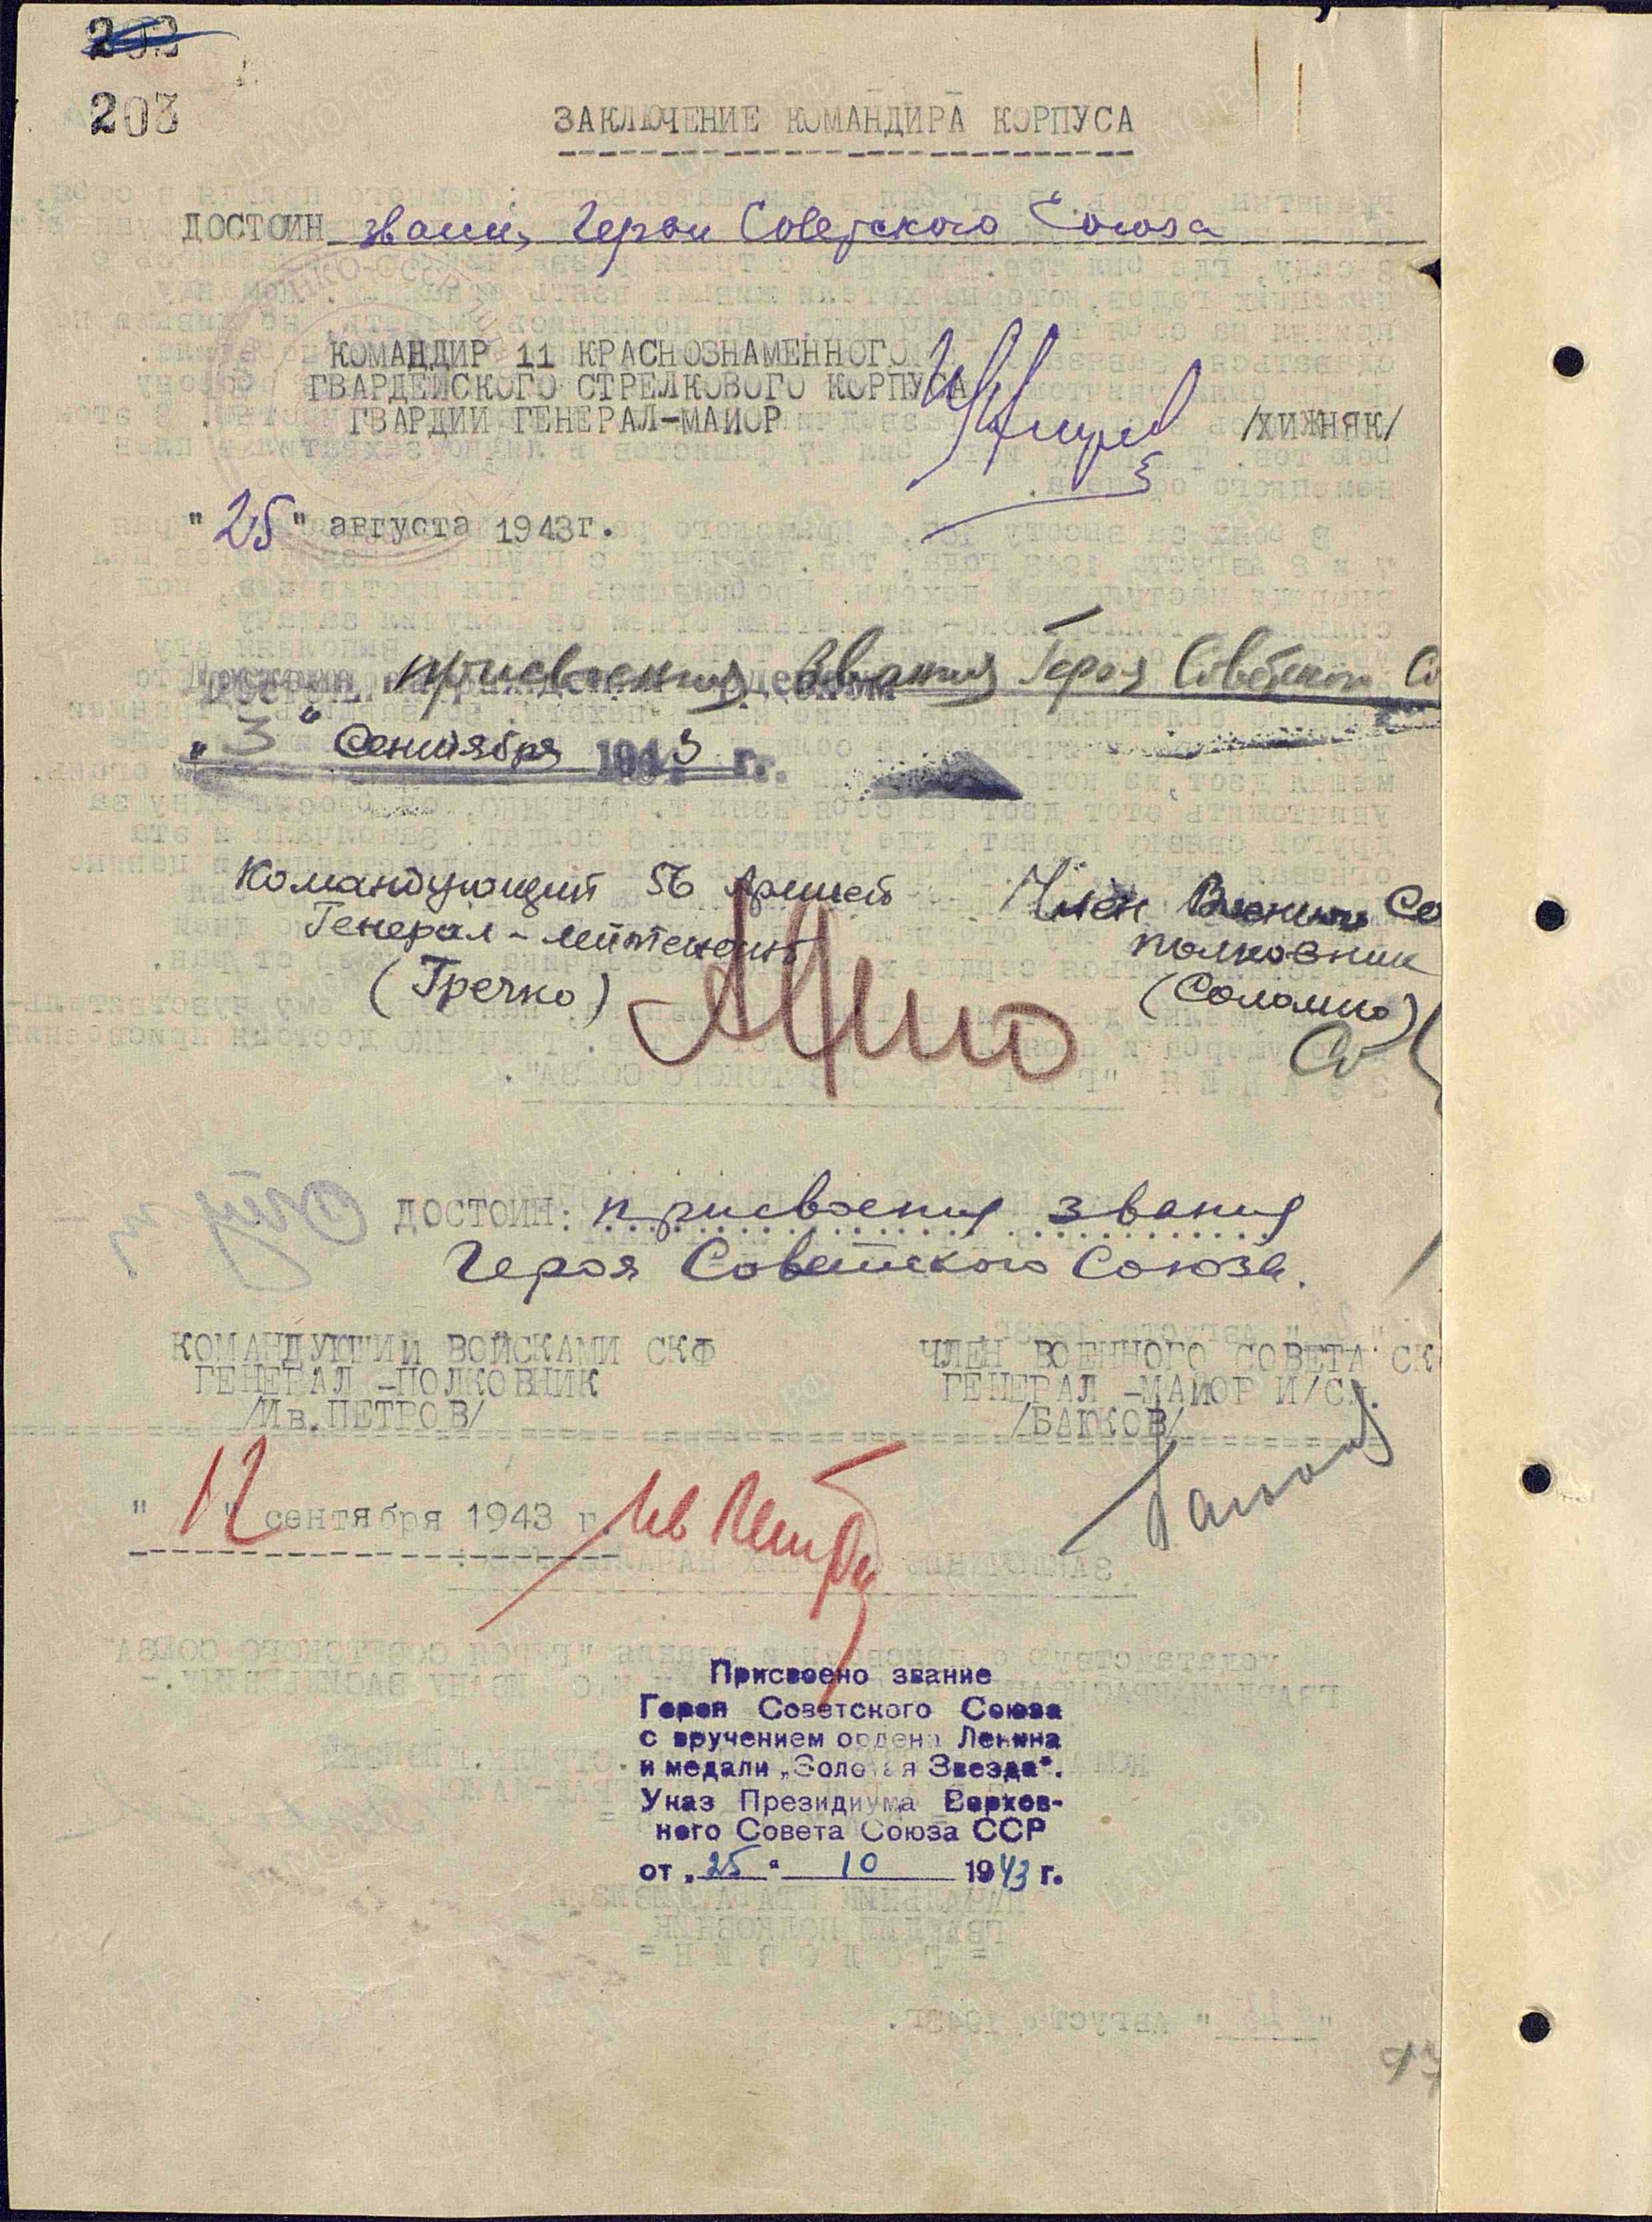 202
203
ЗАКЛЮЧЕНИЕ КОМАНДИРА КОРПУСА
ДОСТОИН звания Героя Советского Союза
КОМАНДИР 11 КРАСНОЗНАМЕННОГО
ГВАРДЕЙСКОГО СТРЕЛКОВОГО КОРПУСА
ГВАРДИИ ГЕНЕРАЛ-МАЙОР /ХИЖНЯК/
"25" августа 1943г.
присвоения звания Героя Советского Со
"3" Сентября 1943 г.
Командующий 56 Армией
Генерал-лейтенант
(Гречко)
Член Военного Со
полковник
(Соломко)
ДОСТОИН: присвоения звания
Героя Советского Союза.
КОМАНДУЮЩИЙ ВОЙСКАМИ СКФ
ГЕНЕРАЛ -ПОЛКОВНИК
/Ив.ПЕТРОВ/
ЧЛЕН ВОЕННОГО СОВЕТА СК
ГЕНЕРАЛ -МАЙОР И/С.
/БАЮКОВ/
"12" сентября 1943 г.
Ив Петров
Присвоено звание
Героя Советского Союза
с вручением ордена Ленина
и медали „Золотая Звезда“.
Указ Президиума Верхов-
ного Совета Союза ССР
от „25“ 10 1943 г.